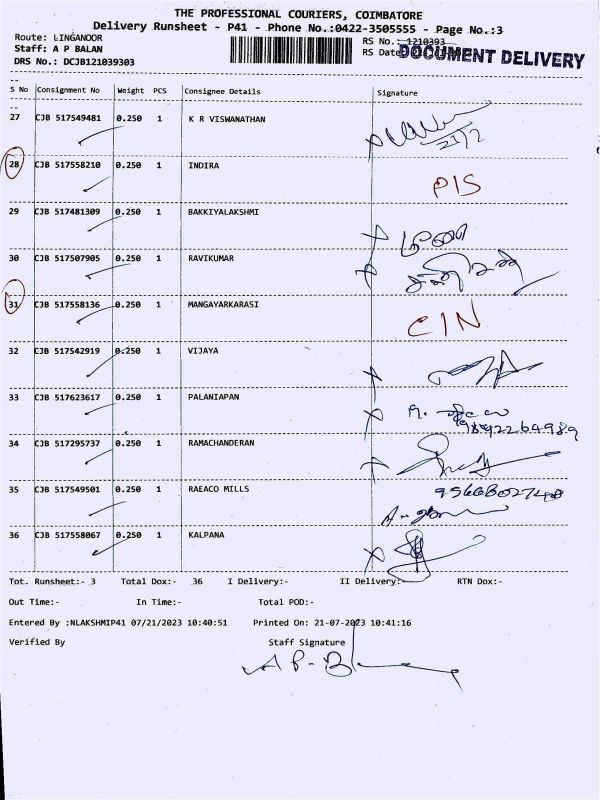 THE PROFESSIONAL COURIERS, COIMBATORE
Delivery Runsheet - P41 - Phone No.:0422-3505555 - Page No.:3
Route: LINGANOOR
Staff: A P BALAN
DRS No.: DCJB121039303
RS No. 1210393
RS Date
DOCUMENT DELIVERY
S No Consignment No Weight PCS Consignee Details Signature
27 CJB 517549481 0.250 1 K R VISWANATHAN 21/7
28 CJB 517558210 0.250 1 INDIRA PIS
29 CJB 517481309 0.250 1 BAKKIYALAKSHMI
30 CJB 517507905 0.250 1 RAVIKUMAR
31 CJB 517558136 0.250 1 MANGAYARKARASI CIN
32 CJB 517542919 0.250 1 VIJAYA
33 CJB 517623617 0.250 1 PALANIAPAN
34 CJB 517295737 0.250 1 RAMACHANDERAN
35 CJB 517549501 0.250 1 RAEACO MILLS
36 CJB 517558067 0.250 1 KALPANA
Tot. Runsheet:- 3 Total Dox:- 36 I Delivery:- II Delivery:- RTN Dox:-
Out Time:- In Time:- Total POD:-
Entered By :NLAKSHMIP41 07/21/2023 10:40:51 Printed On: 21-07-2023 10:41:16
Verified By Staff Signature